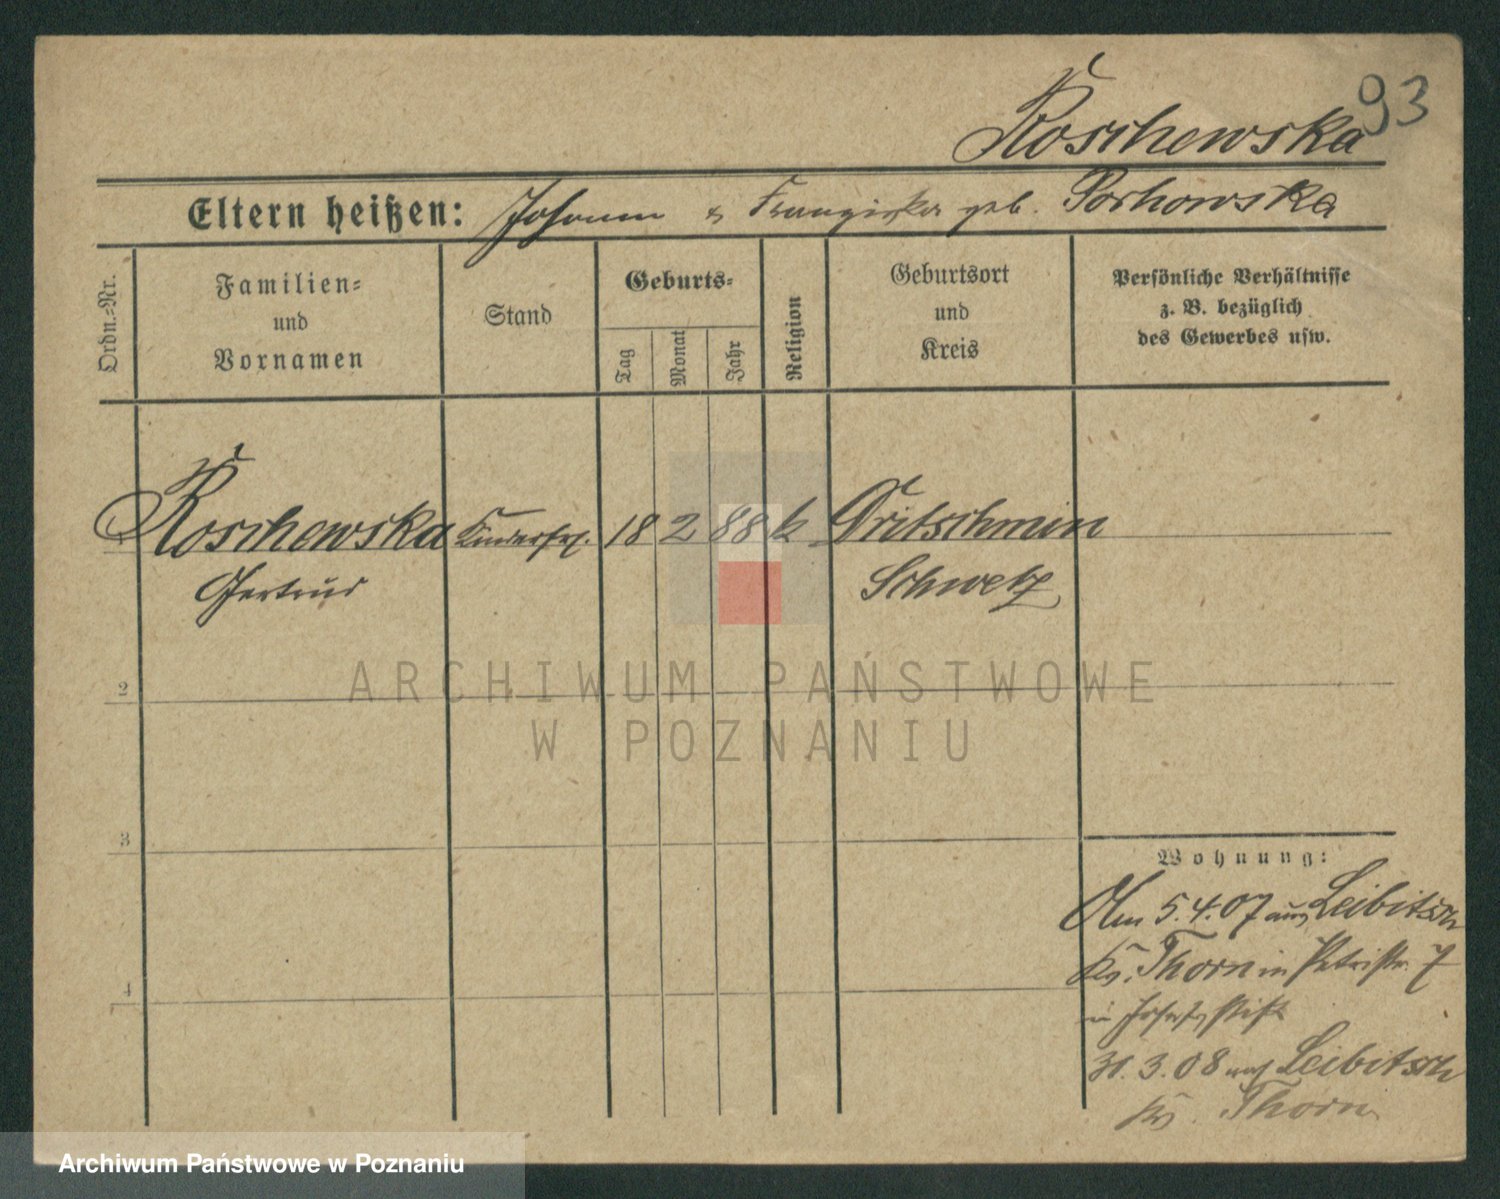 93
Koschewska
Eltern heißen: Johann & Franziska geb. Porhowska
Ordn.-Nr.
Familien-
und
Vornamen
Stand
Geburts-
Tag
Monat
Jahr
Religion
Geburtsort
und
Kreis
Persönliche Verhältnisse
z. B. bezüglich
des Gewerbes usw.
1 Koschewska Kinderfrl. 18 2 88 k Dritschmin
Gertrud Schwetz
2
3
4
Wohnung:
Am 5.4.07 aus Leibitsch
Kr. Thorn in Petristr. 7
in Josefsstift
31.3.08 nach Leibitsch
Kr. Thorn
ARCHIWUM PAŃSTWOWE
W POZNANIU
Archiwum Państwowe w Poznaniu